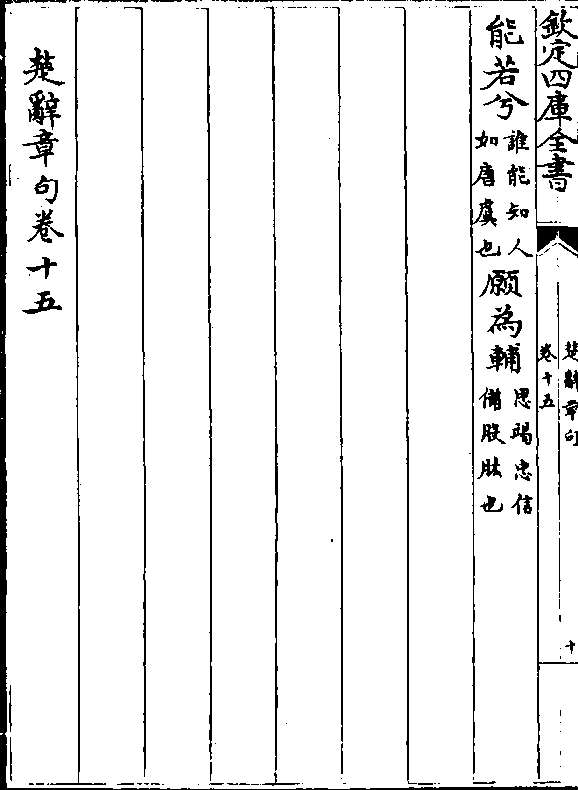 欽定四庫全書
楚辭章句
卷十五
十
能若兮
誰能知人
如唐虞也
願為輔
思竭忠信
備股肱也
楚辭章句卷十五